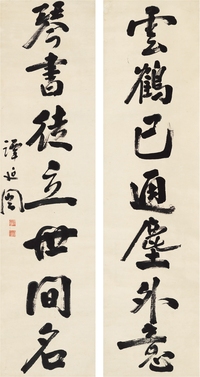 雲鶴已通塵外意
琴書徒立世間名
譚延闓